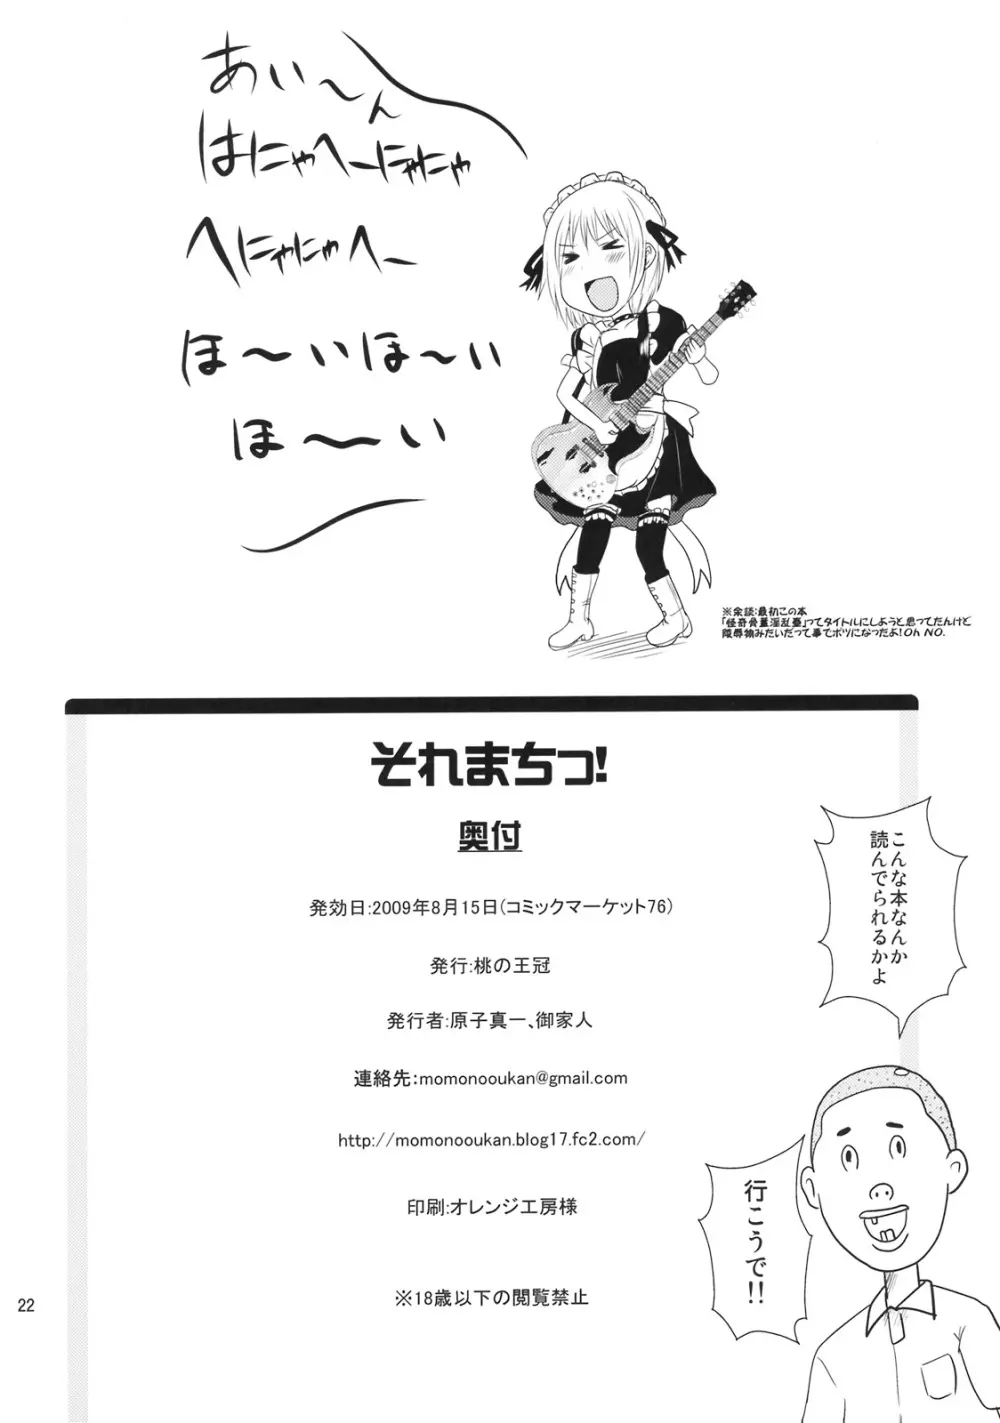 あい〜ん
はにゃへーにゃにゃ
へにゃにゃへー
ほ〜いほ〜い
ほ〜い
※余談:最初この本
「怪奇骨董淫乱臺」ってタイトルにしようと思ってたんけど
陵辱物みたいだって事でボツになっただよ!Oh NO.
それまちっ!
奥付
発効日:2009年8月15日(コミックマーケット76)
発行:桃の王冠
発行者:原子真一、御家人
連絡先:momonooukan@gmail.com
http://momonooukan.blog17.fc2.com/
印刷:オレンジ工房様
※18歳以下の閲覧禁止
こんな本なんか
読んでられるかよ
行こうで!!
22